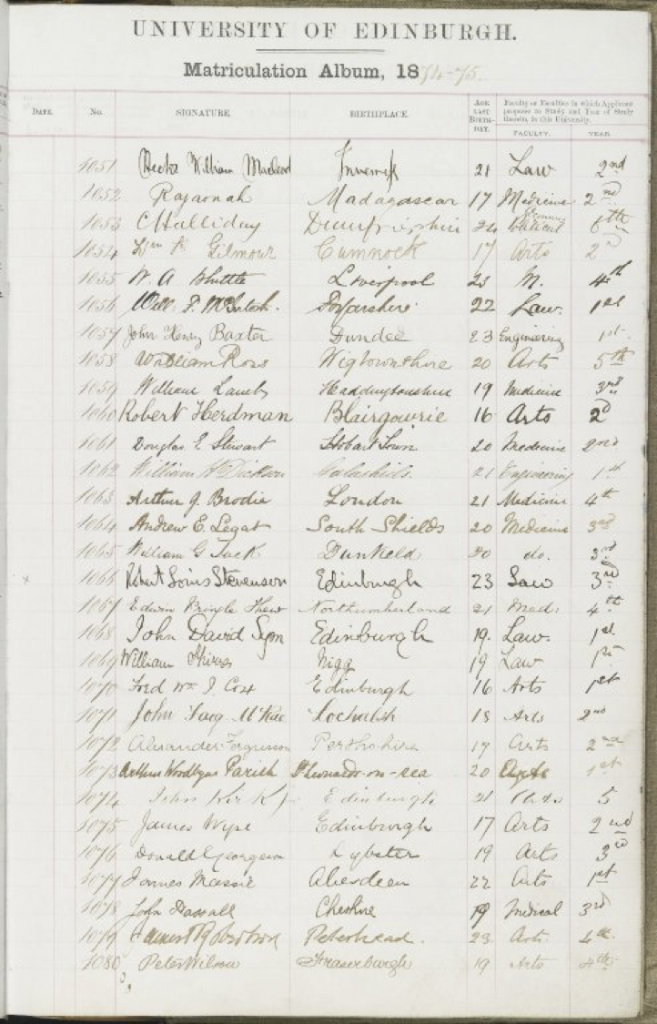 UNIVERSITY OF EDINBURGH.
Matriculation Album, 1874-75.
DATE. No. SIGNATURE. BIRTHPLACE. AGE LAST BIRTH-DAY. Faculty or Faculties in which Applicant proposes to Study and Year of Study therein, in this University.
FACULTY. YEAR.
1051 Hector William Macleod Inverness 21 Law 2nd
1052 Rajaonah Madagascar 17 Medicine 2nd
1053 C Halliday Dumfriesshire 24 6th
1054 Wm Gilmour Cumnock 17 Arts 2d
1055 W. A. Shuttle Liverpool 23 M. 4th
1056 Will. F. McIntosh. Forfarshire 22 Law. 1st
1057 John Henry Baxter Dundee 23 Engineering 1st
1058 William Ross Wigtownshire 20 Arts 5th
1059 William Lamb Haddingtonshire 19 Medicine 3rd
1060 Robert Herdman Blairgowrie 16 Arts 2d
1061 Douglas E Stewart Hobart Town 20 Medicine 2nd
1062 William H Dickson Galashiels. 21 Engineering 1st
1063 Arthur J. Brodie London 21 Medicine 4th
1064 Andrew E. Legat South Shields 20 Medicine 3rd
1065 William G Jack Dunkeld 20 do. 3rd
x 1066 Robert Louis Stevenson Edinburgh 23 Law 3rd
1067 Edwin Pringle Northumberland 21 Med: 4th
1068 John David Sym Edinburgh 19. Law. 1st
1069 William Shirres Nigg 19 Law 1st
1070 Fred Wm J. Cox Edinburgh 16 Arts 1st
1071 John McRae Lochalsh 18 Arts 2nd
1072 Alexander Ferguson Perthshire 17 Arts 2nd
1073 Arthur Woodbyne Parish St Leonards-on-sea 20 1st
1074 John Kirk Jr Edinburgh 21 5
1075 James Wyse Edinburgh 17 Arts 2nd
1076 Donald Georgeson Lybster 19 Arts 3rd
1077 James Massie Aberdeen 22 Arts 1st
1078 John Hassall Cheshire 19 Medical 3rd
1079 Robertson Peterhead. 23 Arts. 4th.
1080 Peter Wilson Fraserburgh 19 Arts 4th